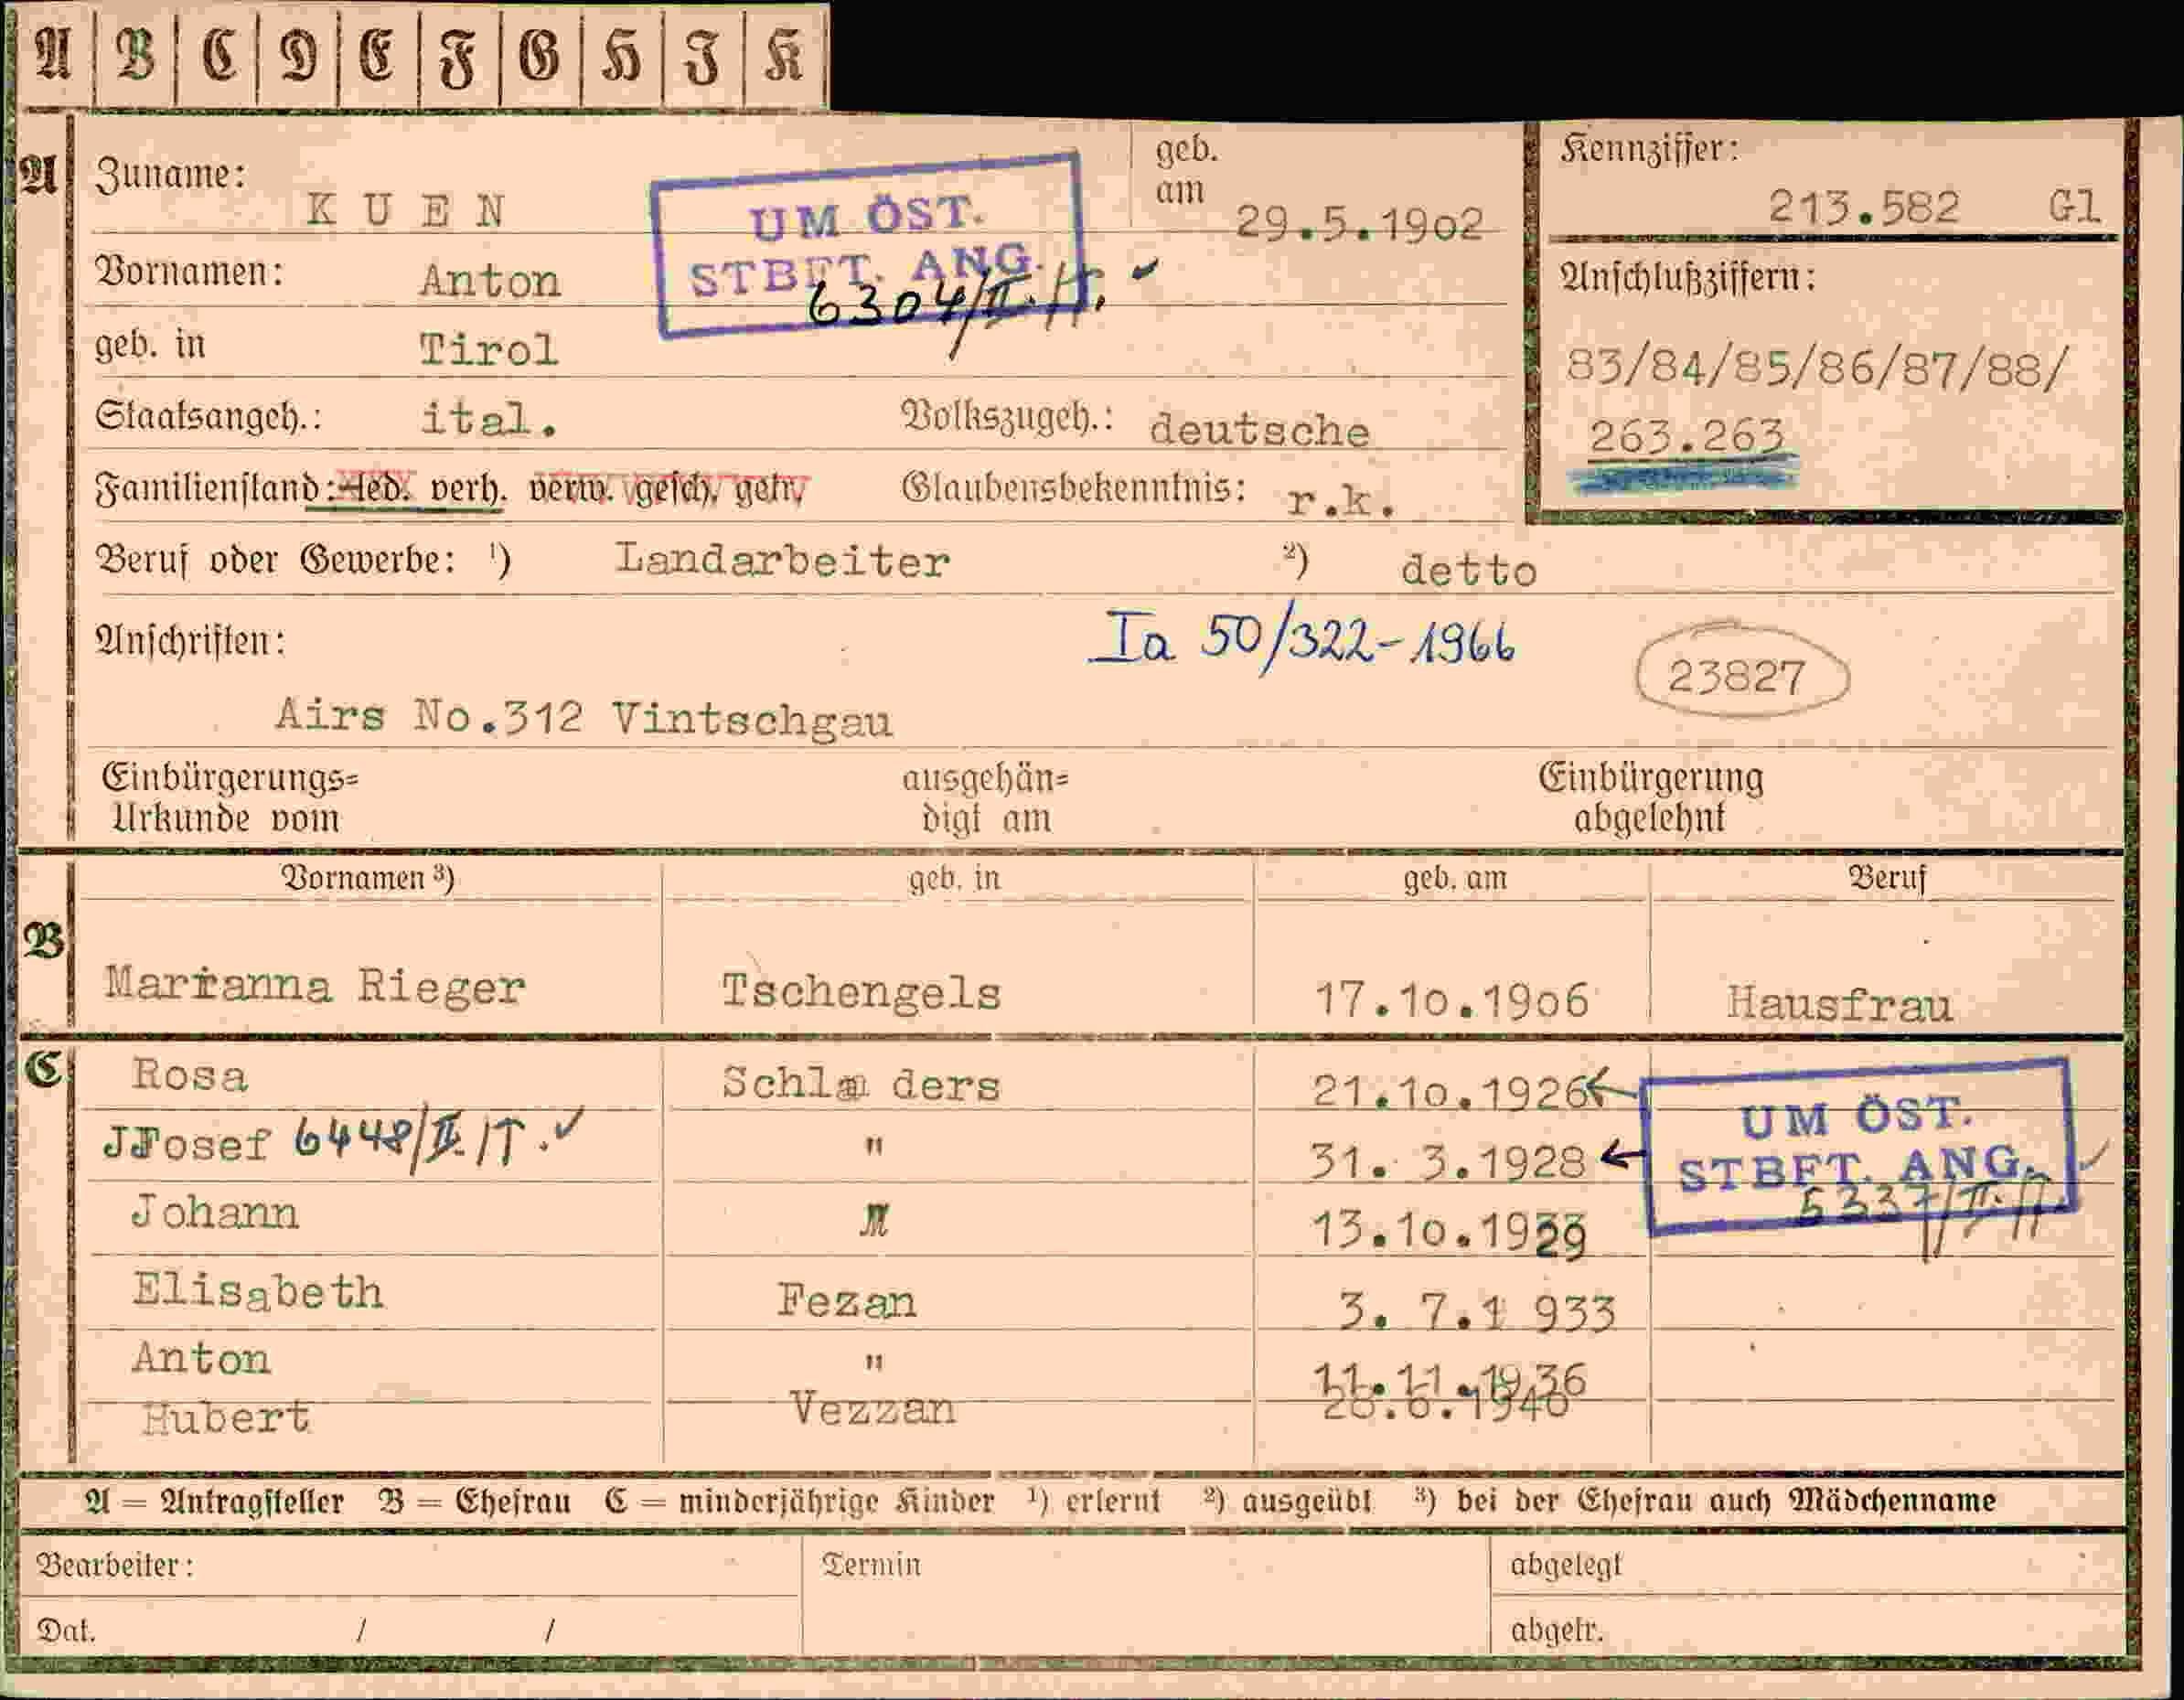 A B C D E F G H I K
A Zuname: K U E N
geb. am 29.5.1902
Kennziffer: 213.582 Gl
UM ÖST.
STBFT. ANG.
6304/II.
Vornamen: Anton
Anschlußziffern:
83/84/85/86/87/88/
263.263
geb. in Tirol
Staatsangeh.: ital. Volkszugeh.: deutsche
Familienstand: led. verh. verw. gesch. getr. Glaubensbekenntnis: r.k.
Beruf oder Gewerbe: ¹) Landarbeiter ²) detto
Anschriften:
Ia 50/322-1966
23827
Airs No.312 Vintschgau
Einbürgerungs= ausgehän= Einbürgerung
Urkunde vom digt am abgelehnt
Vornamen ³) geb. in geb. am Beruf
B Marianna Rieger Tschengels 17.10.1906 Hausfrau
C Rosa Schlanders 21.10.1926
Josef 6448/II/T. ✓ " 31. 3.1928
UM ÖST.
STBFT. ANG.
5337/II.
Johann " 13.10.1929
Elisabeth Fezan 3. 7.1 933
Anton " 11.11.1936
Hubert Vezzan
A = Antragsteller B = Ehefrau C = minderjährige Kinder ¹) erlernt ²) ausgeübt ³) bei der Ehefrau auch Mädchenname
Bearbeiter: Termin abgelegt
Dat. / / abgetr.